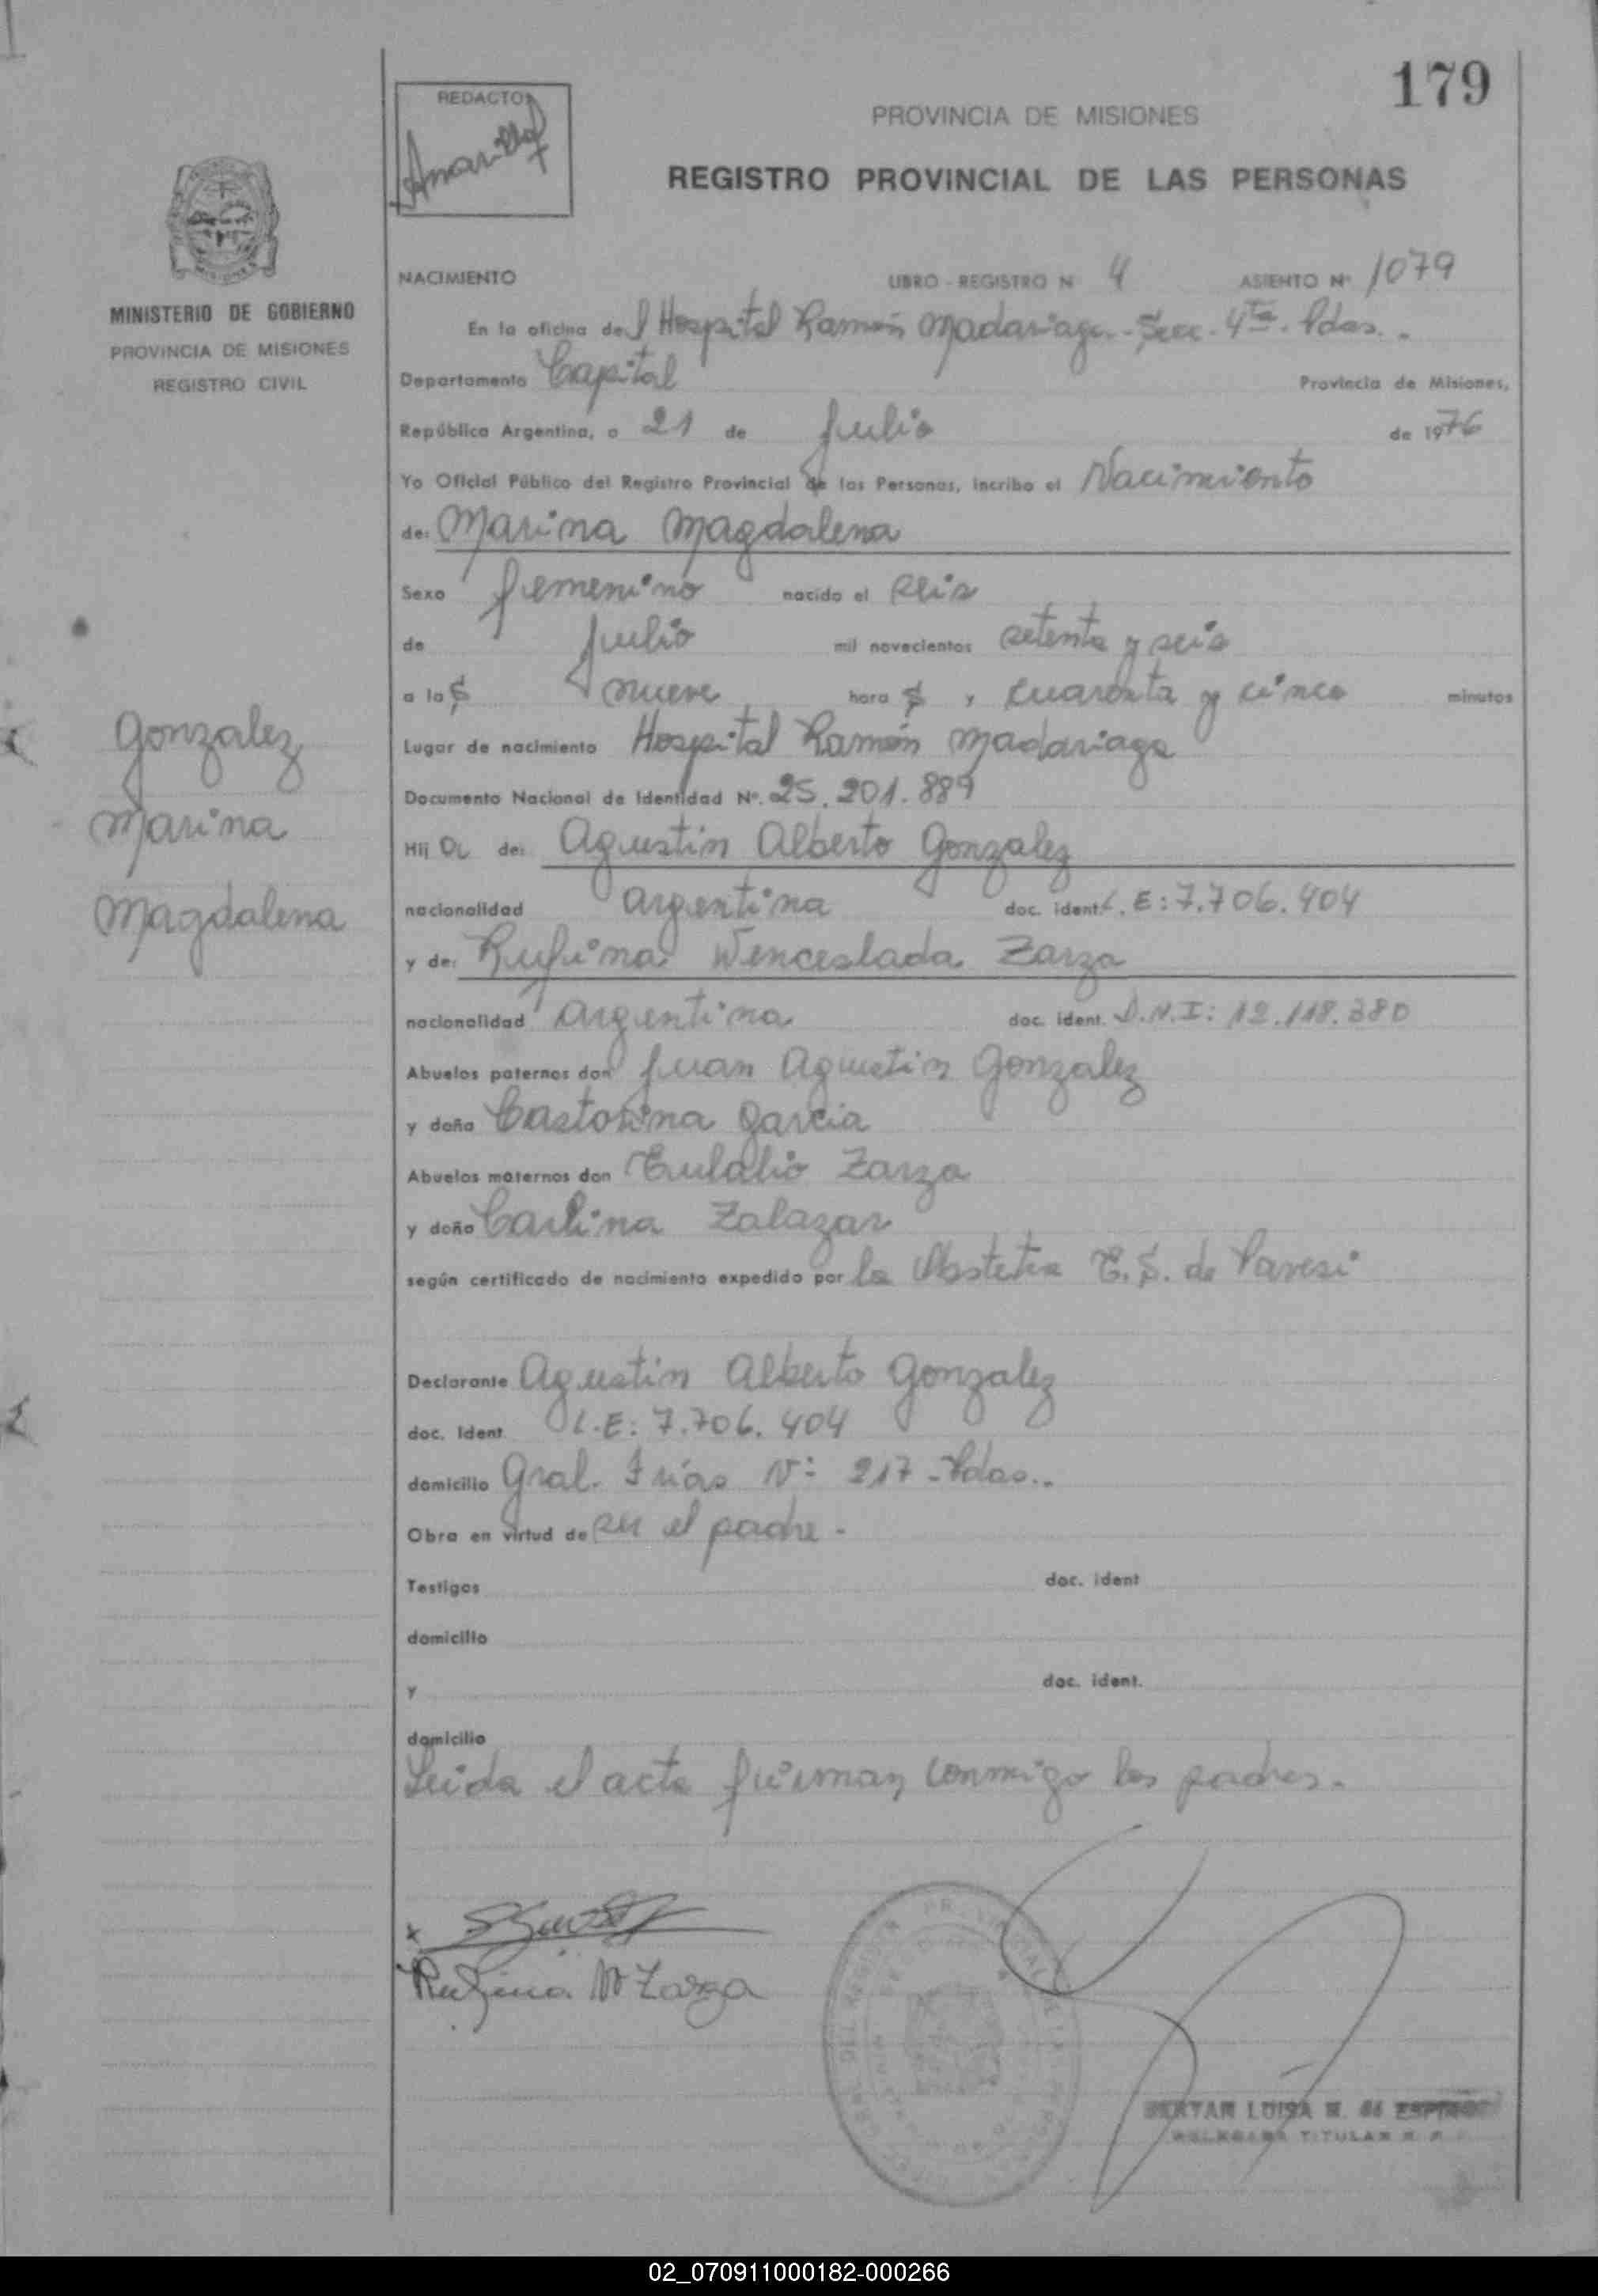 179
REDACTO
Amarilla
PROVINCIA DE MISIONES
REGISTRO PROVINCIAL DE LAS PERSONAS
MINISTERIO DE GOBIERNO
PROVINCIA DE MISIONES
REGISTRO CIVIL
NACIMIENTO LIBRO - REGISTRO N 4 ASIENTO Nº 1079
En la oficina del Hospital Ramón Madariaga - Secc. 4ta. Pdas. -
Departamento Capital Provincia de Misiones,
República Argentina, a 21 de Julio de 1976
Yo Oficial Público del Registro Provincial de las Personas, incribo el Nacimiento
de: Marina Magdalena
Sexo femenino nacido el seis
de Julio mil novecientos setenta y seis
a las nueve hora s y cuarenta y cinco minutos
Lugar de nacimiento Hospital Ramón Madariaga
Documento Nacional de Identidad Nº. 25.201.889
Hij a de: Agustin Alberto Gonzalez
nacionalidad argentina doc. ident. L.E: 7.706.404
y de: Rufina Wenceslada Zarza
nacionalidad argentina doc. ident. D.N.I: 12.118.380
Abuelos paternos don Juan Agustin Gonzalez
y doña Castorina Garcia
Abuelos maternos don Eulalio Zarza
y doña Carlina Zalazar
según certificado de nacimiento expedido por la Obstetra E.S. de Paresi
Gonzalez
Marina
Magdalena
Declarante Agustin Alberto Gonzalez
doc. Ident. L.E: 7.706.404
domicilio Gral. Frias Nº: 217 - Pdas..
Obra en virtud de ser el padre -
Testigos doc. ident
domicilio
y doc. ident.
domicilio
Leida el acta firman conmigo los padres.
x
Rufina W Zarza
LUISA M. de ESPINO
TITULAR
02_070911000182-000266